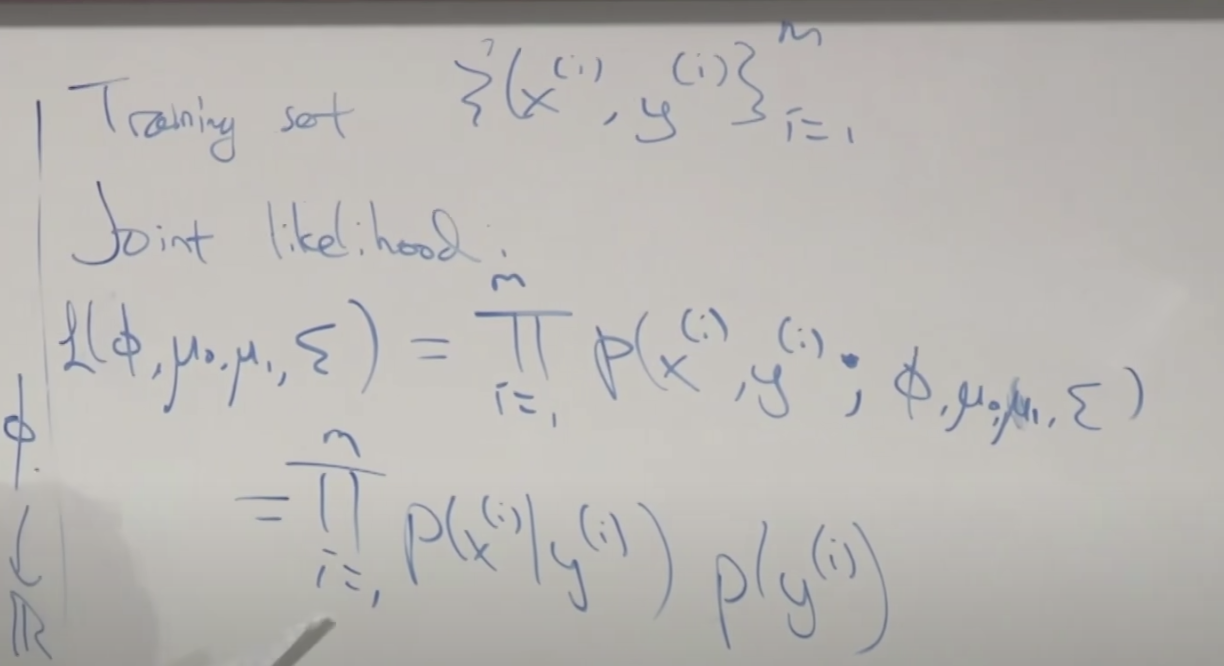 Training set {(x^(i), y^(i)}^m_{i=1}
Joint likelihood:
ℒ(ϕ, μ₀, μ₁, Σ) = ∏^m_{i=1} p(x^(i), y^(i); ϕ, μ₀, μ₁, Σ)
ϕ.
= ∏^m_{i=1} p(x^(i)|y^(i)) p(y^(i))
ℝ